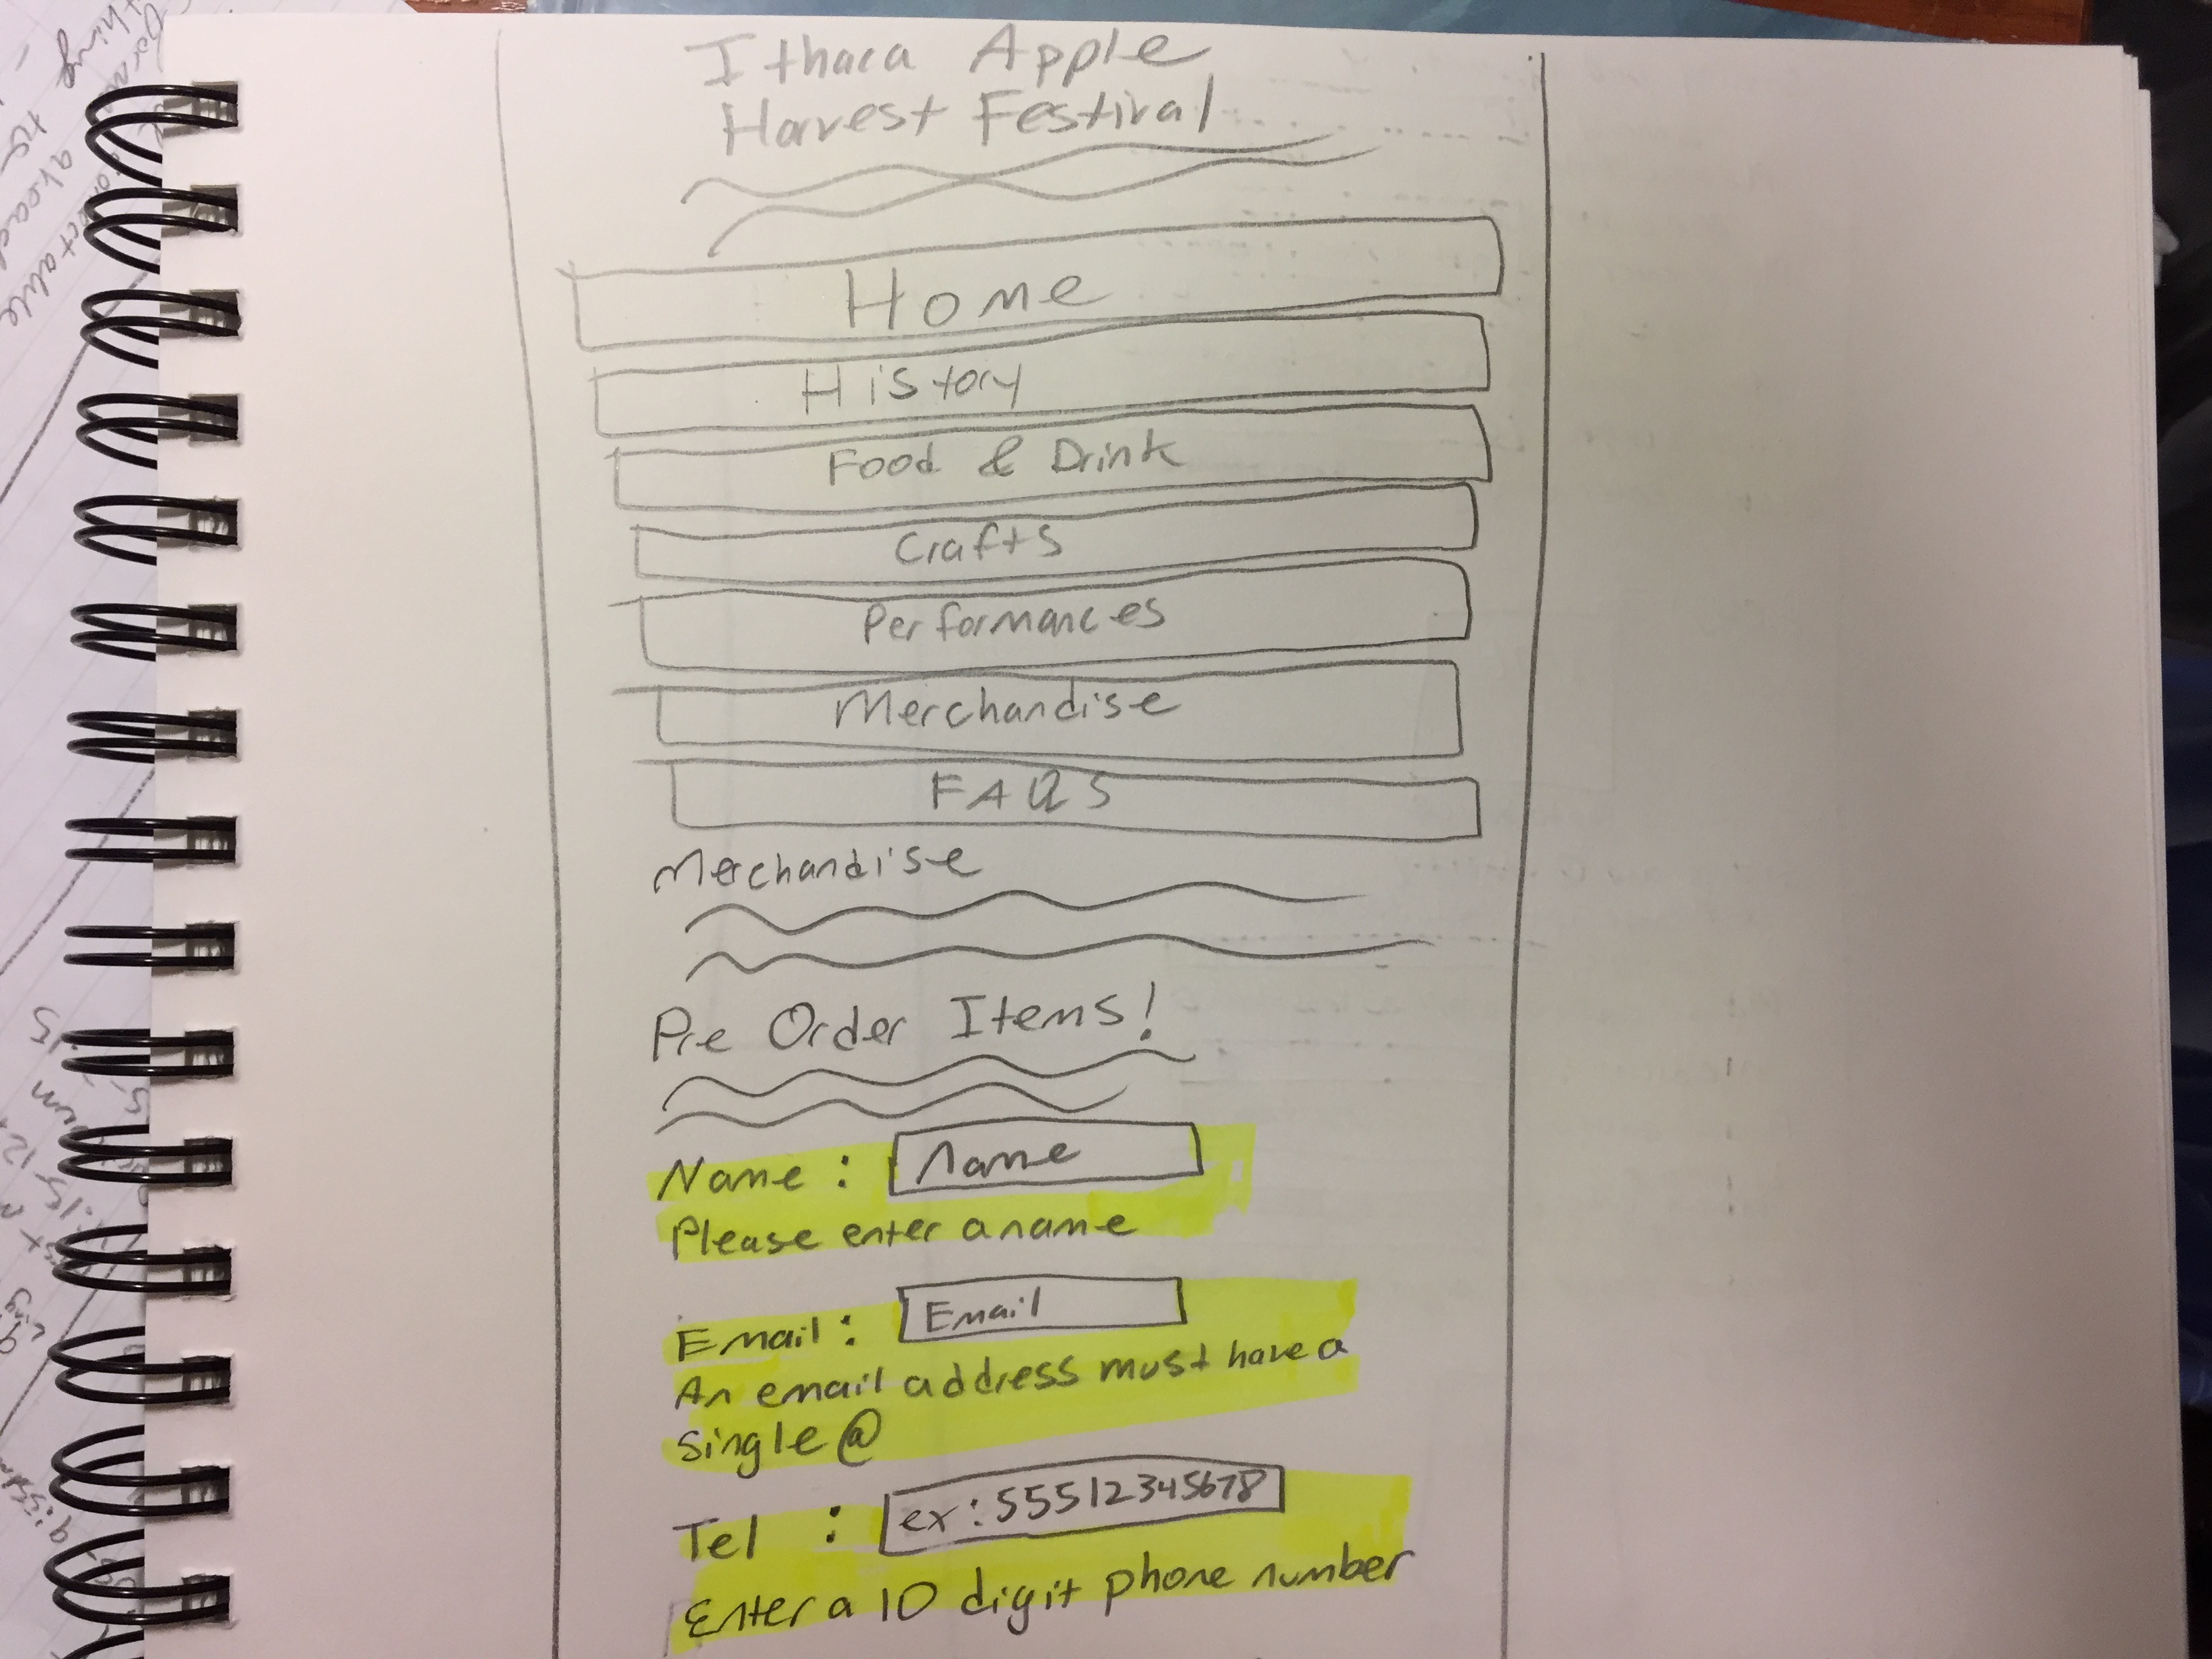 Ithaca Apple
Harvest Festival
Home
History
Food & Drink
Crafts
Performances
Merchandise
FAQS
Merchandise
Pre Order Items!
Name : Name
Please enter a name
Email : Email
An email address must have a
single @
Tel : ex: 55512345678
Enter a 10 digit phone number